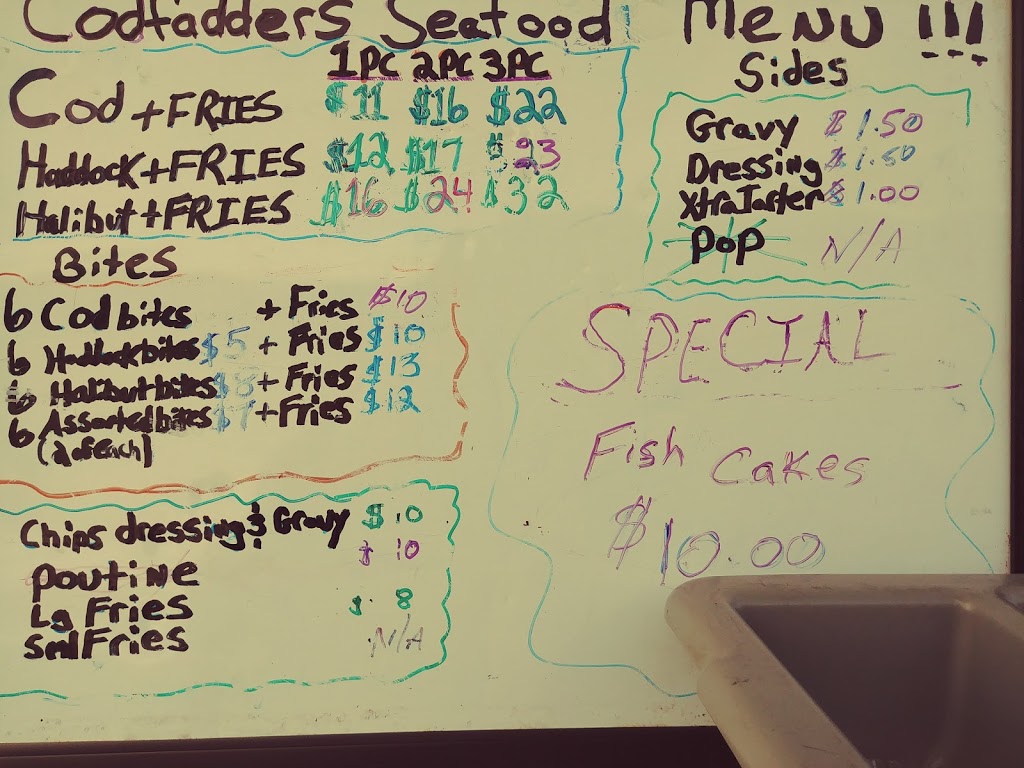 Codfadders Seafood Menu !!!
1PC 2PC 3PC
Cod + FRIES $11 $16 $22
Haddock + FRIES $12 $17 $23
Halibut + FRIES $16 $24 $32
Bites
6 Cod bites + Fries $10
6 Haddock bites $5 + Fries $10
6 Halibut bites $8 + Fries $13
6 Assorted bites $7 + Fries $12
(2 of each)
Chips dressing & Gravy $10
Poutine $10
Lg Fries $ 8
Sml Fries N/A
Sides
Gravy $1.50
Dressing $1.50
Xtra Tarter $1.00
Pop N/A
SPECIAL
Fish Cakes
$10.00